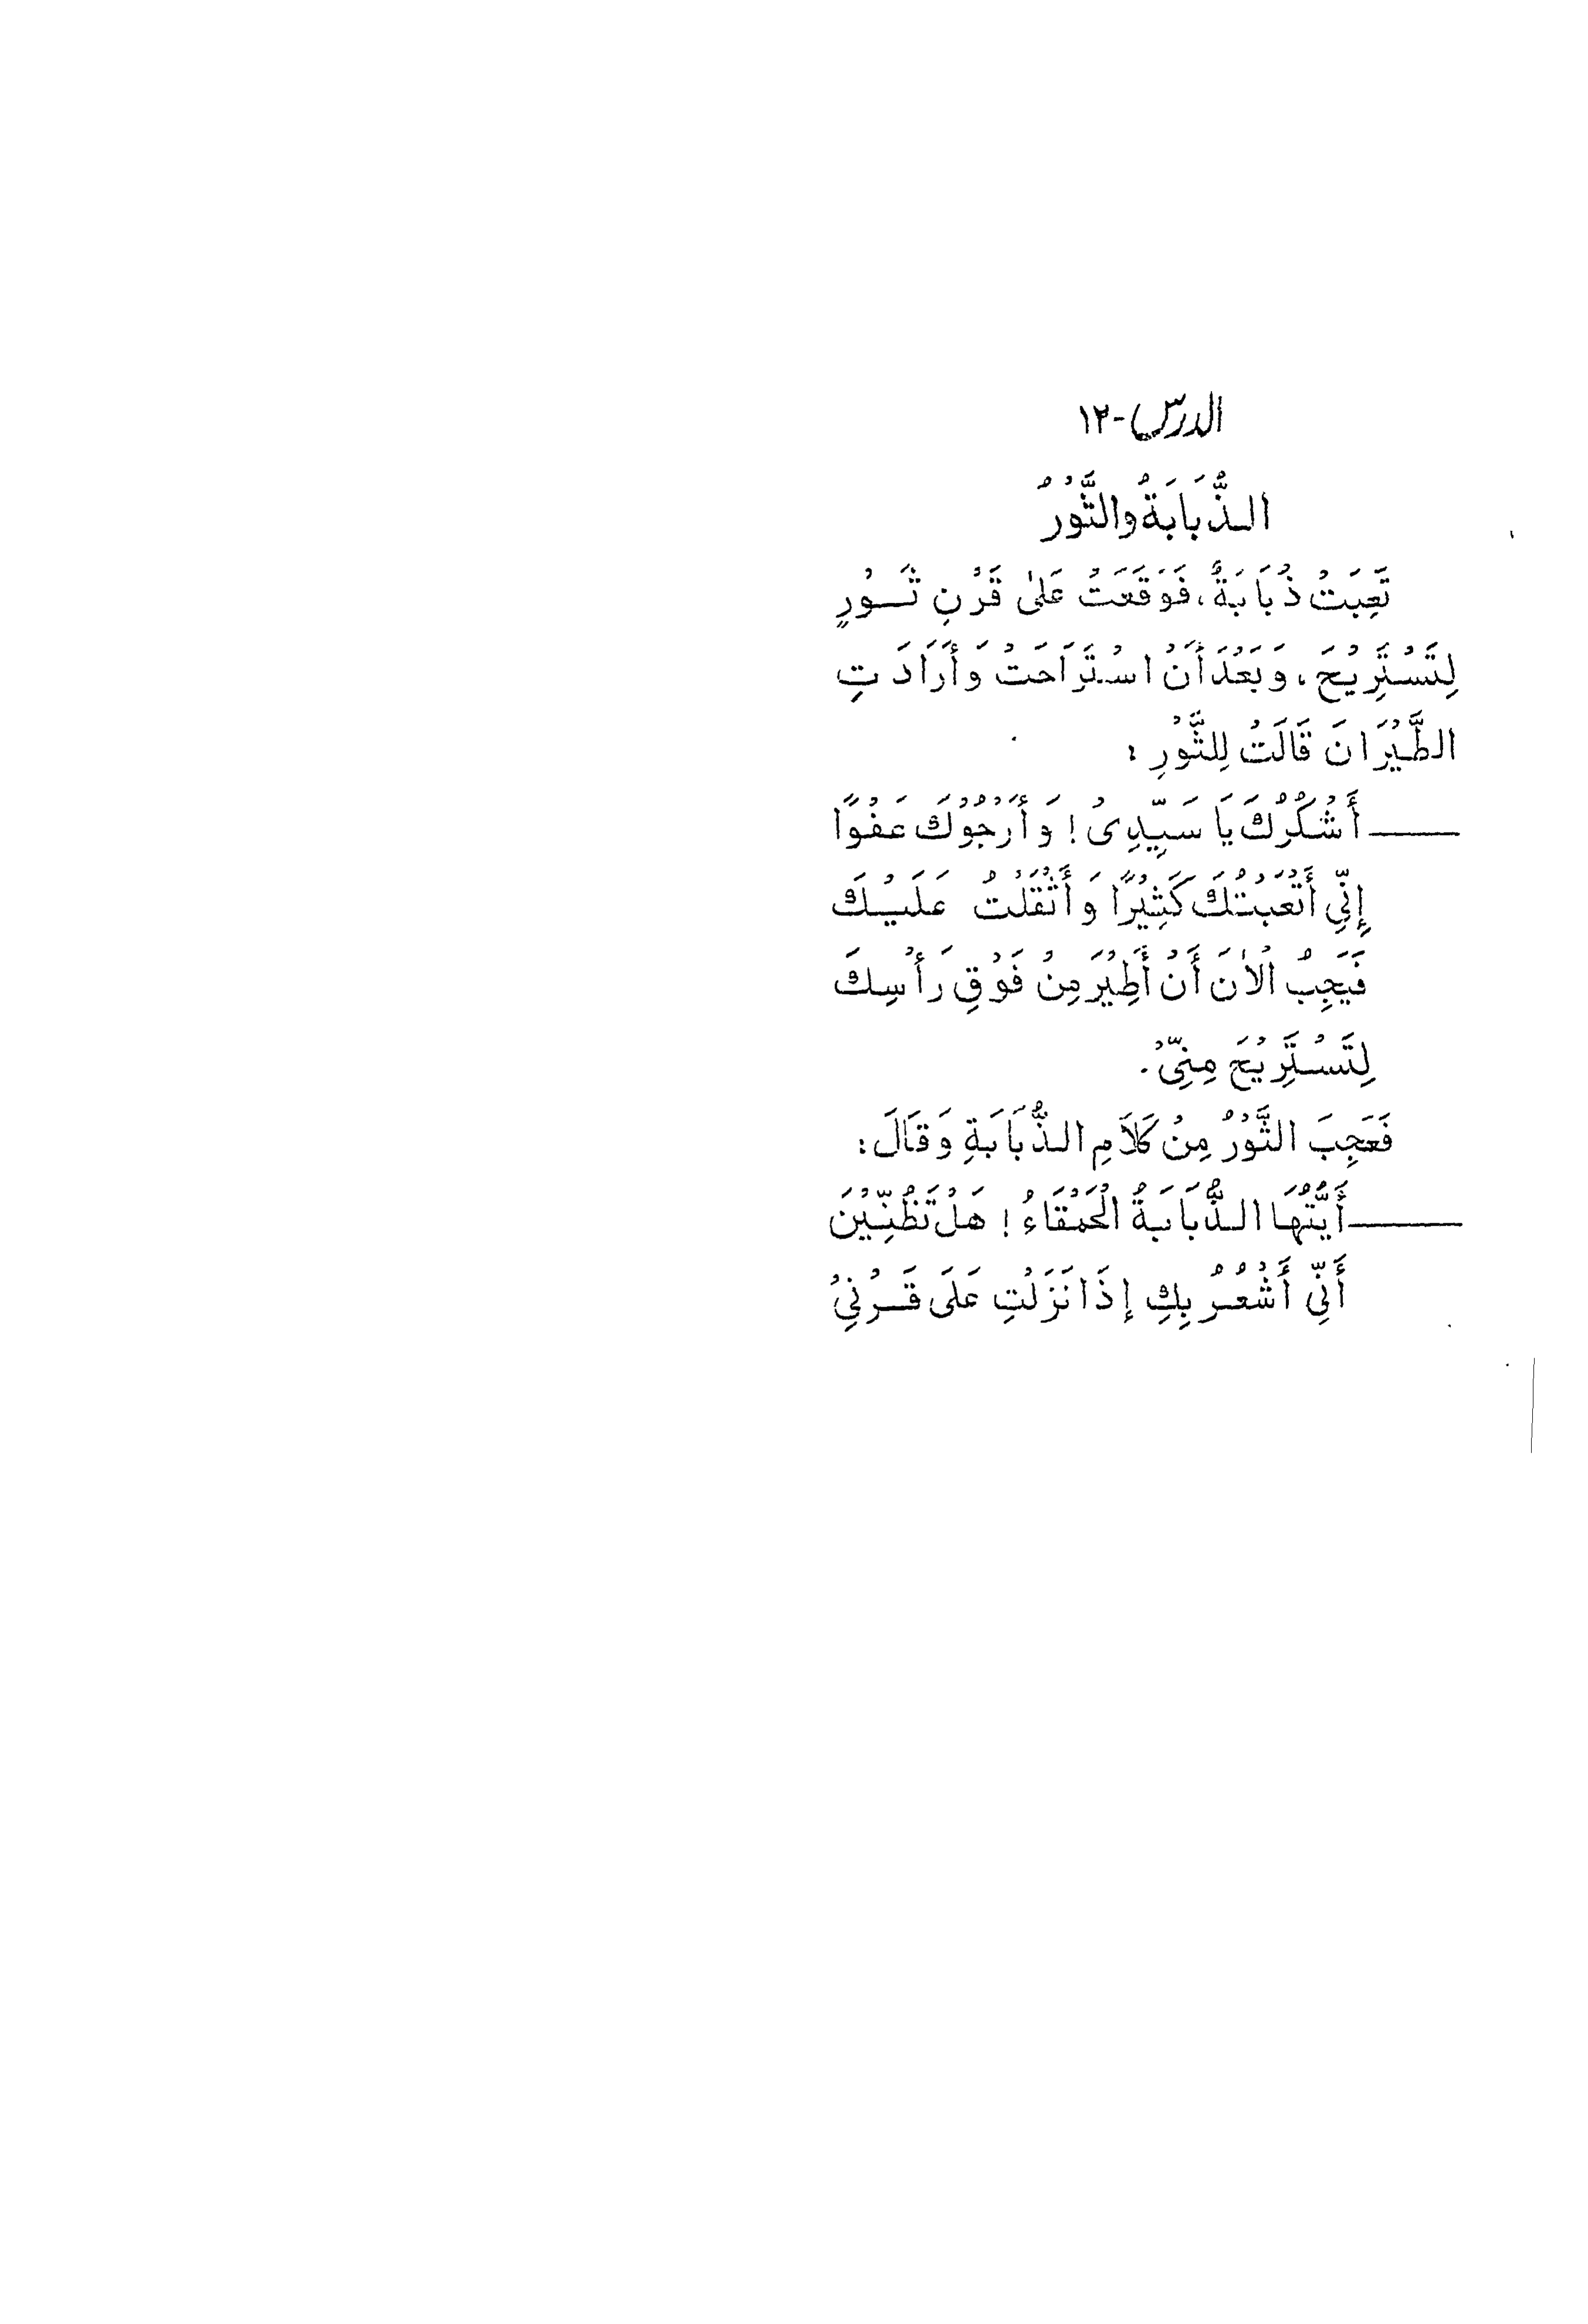 الدرس - ١٢
الذُّبَابَةُ والثَّوْرُ
تَعِبَتْ ذُبَابَةٌ، فَوَقَعَتْ عَلَىٰ قَرْنِ ثَوْرٍ
لِتَسْتَرِيْحَ، وَبَعْدَ أَنْ اسْتَرَاحَتْ وَأَرَادَتِ
الطَّيْرَانَ قَالَتْ لِلثَّوْرِ :
— أَشْكُرُكَ يَا سَيِّدِىْ ! وَأَرْجُوْكَ عَفْوًا
إِنِّي أَتْعَبْتُكَ كَثِيْرًا وَأَثْقَلْتُ عَلَيْكَ
فَيَجِبُ الْاٰنَ أَنْ أَطِيْرَ مِنْ فَوْقِ رَأْسِكَ
لِتَسْتَرِيْحَ مِنِّيْ.
فَعَجِبَ الثَّوْرُ مِنْ كَلَامِ الذُّبَابَةِ وَقَالَ :
— أَيَّتُهَا الذُّبَابَةُ الْحَمْقَاءُ ! هَلْ تَظُنِّيْنَ
أَنِّي أَشْعُرُ بِكِ إِذَا نَزَلْتِ عَلَى قَرْنِيْ